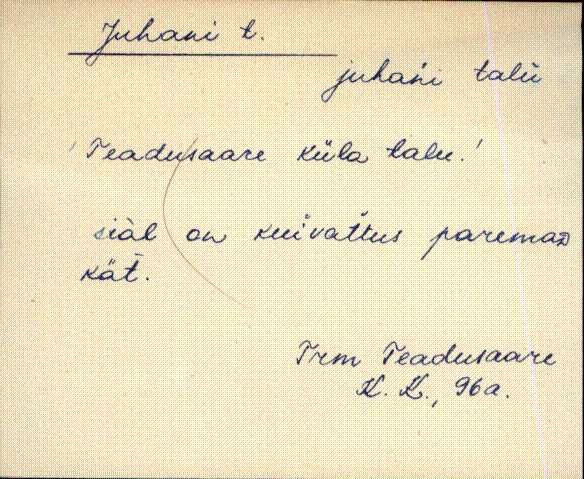 Juhani t.
juhańi talu
'Teadusaare küla talu.'
siäl on kuivattus paremaD
kät̄.
Trm Teadusaare
K. K., 96a.